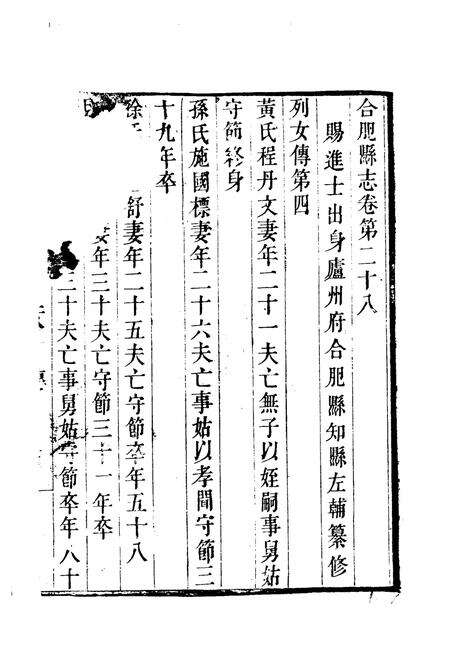 合肥縣志卷第二十八
賜進士出身廬州府合肥縣知縣左輔纂修
列女傳第四
黃氏程丹文妻年二十一夫亡無子以姪嗣事舅姑
守節終身
孫氏施國標妻年二十六夫亡事姑以孝聞守節三
十九年卒
徐 舒妻年二十五夫亡守節卒年五十八
妻年三十夫亡守節三十一年卒
二十夫亡事舅姑守節卒年八十